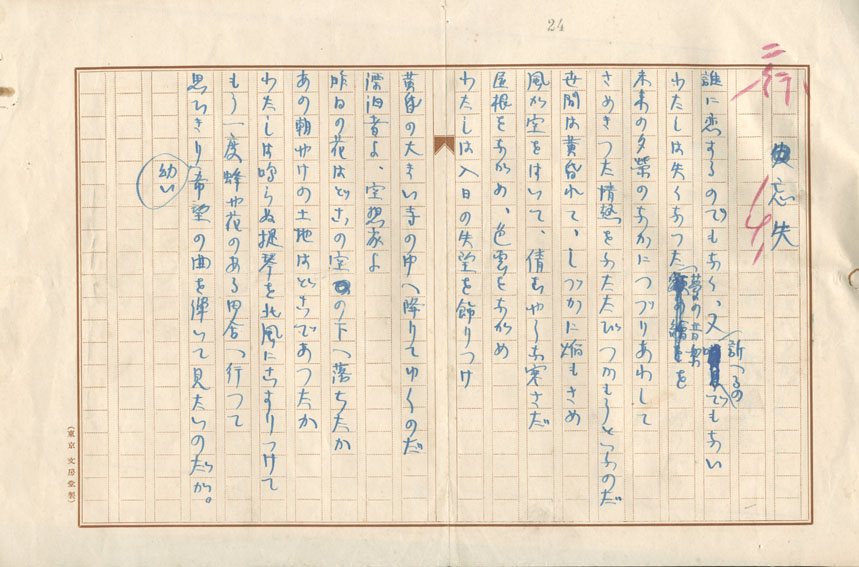 24
二行
忘失
誰に恋するのでもなく、又訴へるのでもない
わたしは失くなつた夢の音楽を
未来の夕栄のなかにつづりあわして
さめきつた情熱をふたたびつかもうといふのだ
世間は黄昏れて、しづかに焔もさめ
風が空をはいて、倩むやうな寒さだ
屋根をながめ、色雲をながめ
わたしは入日の失望を飾りつけ
黄昏の大きい寺の中へ降りてゆくのだ
漂泊者よ、空想家よ
昨日の花はどこの空の下へ落ちたか
あの朝やけの土地はどこであつたか
わたしは鳴らぬ提琴を北風にこすりつけて
もう一度蜂や花のある田舎へ行つて
思ひきり幼い希望の曲を弾いて見たいのだが。
(東京 文房堂製)